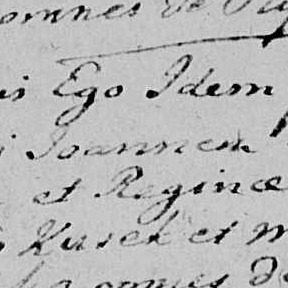 omnes de
is Ego Idem
Joannem
et Reginæ
Kusek et m
omnes de